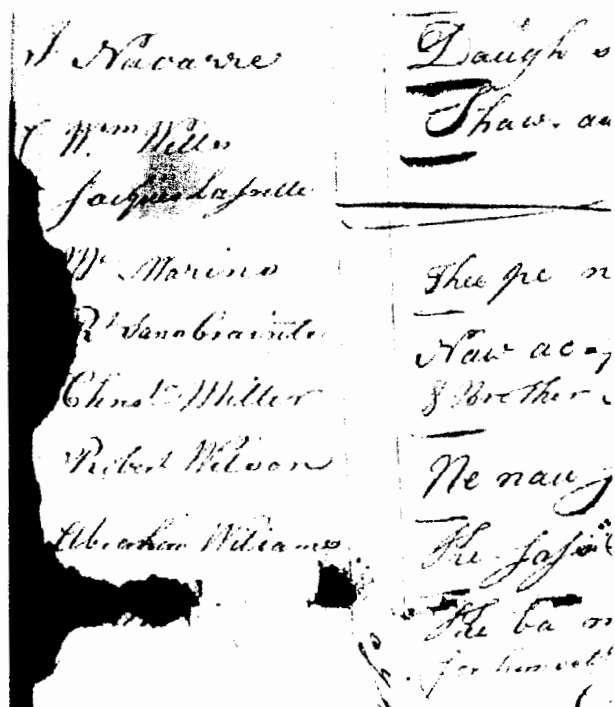 Navarre
Wm Wells
Jacques Laselle
Mr Morins
Rt
Christr Miller
Robert Wilson
Abraham Williams
Daugh s
Shaw. au
Thee pe n
Naw ac
& Brother
Ne nau
The
The ba m
for himself